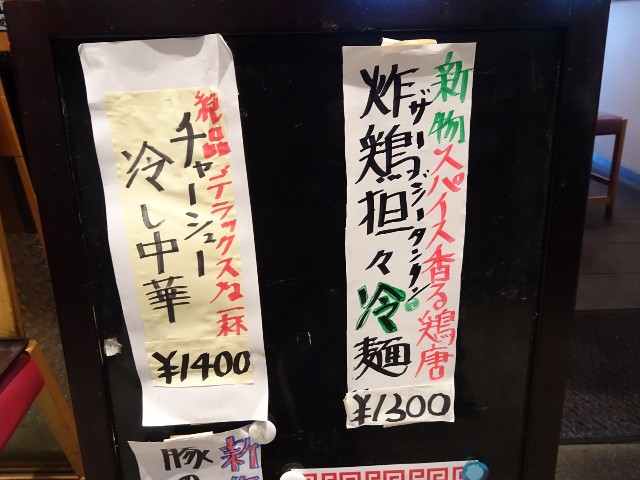 新物スパイス香る鶏唐
ザージータンタン
炸鶏担々冷麺
¥1300
絶品デラックスな一杯
チャーシュー
冷し中華
¥1400
新
豚